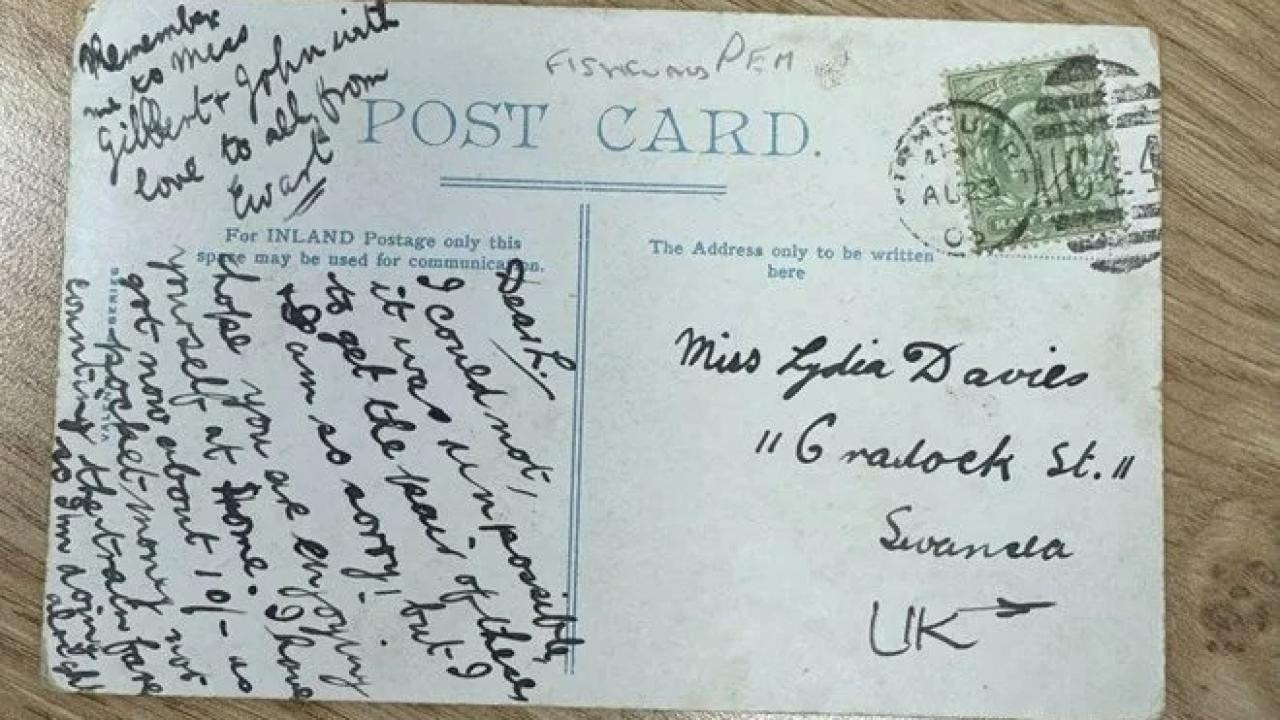 Remember
me to Miss
Gilbert & John with
love to all, from
Ewart
PEM
POST CARD.
For INLAND Postage only this
space may be used for communication.
The Address only to be written
here
AU 23
Dear L.,
I could not,
it was impossible,
to get the pair of these
but I
am so sorry!
hope you are enjoying
yourself at Home. I have
got now about 10/- as
pocket-money not
counting the train fare
so I'm doing
alright
Miss Lydia Davies
"Cradock St."
Swansea
UK